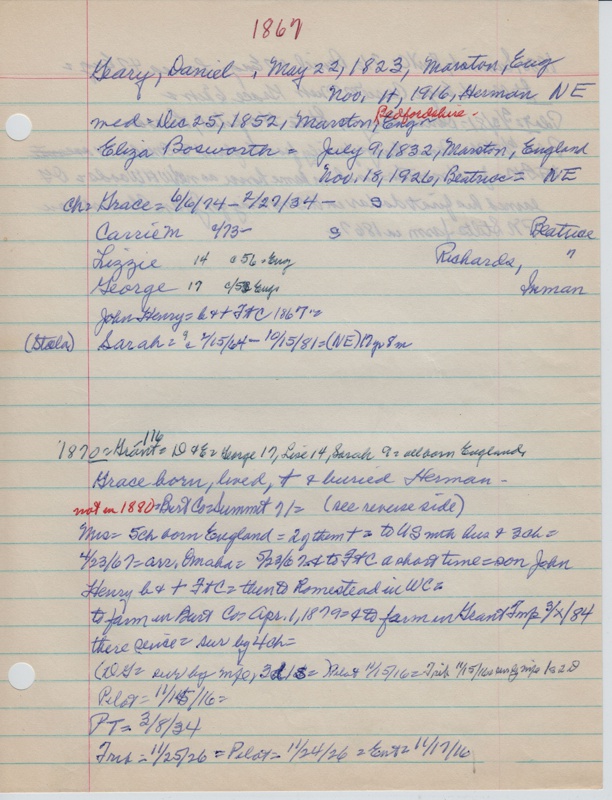 1867
Geary, Daniel, May 22, 1823, Marston, Eng
Nov. 14, 1916, Herman NE
med = Dec 25, 1852, Marston, Eng Bedfordshire.
Eliza Bosworth = July 9, 1832, Marston, England
Nov. 18, 1926, Beatrice = NE
ch = Grace = 6/6/74 - 2/27/34 - 9
Carrie M /73 - 9 Beatrice
Lizzie 14 c 56 = Eng Richards, "
George 17 c/53 Eng Inman
John Henry = b + t FtC 1867 =
(Stella) Sarah = 9 2/15/64 - 10/15/81 = (NE) 17 yr 8 m
1870 = Grant = 176 D & E = George 17, Lise 14, Sarah 9 = all born England,
Grace born, lived, t & buried Herman -
not in 1880 = Burt Co = Summit 71 = (see reverse side)
Mrs = 5 ch born England = 2 of them t = to US with hus & 3 ch =
4/23/67 = arr. Omaha = 5/23/67 & to FtC a short time = son John
Henry b & t FtC = then to Homestead in WC =
to farm in Burt Co = Apr. 1, 1879 = & to farm in Grant Twp 3/x/84
there since = sur by 4 ch =
(DG = sur by wife, 3d 1s =) Pilot 11/15/16 = Trib 11/15/16 sur by wife 1s 2d
Pilot = 11/15/16 =
PT = 3/8/34
Trib = 11/25/26 = Pilot = 11/24/26 = Ent = 11/17/16